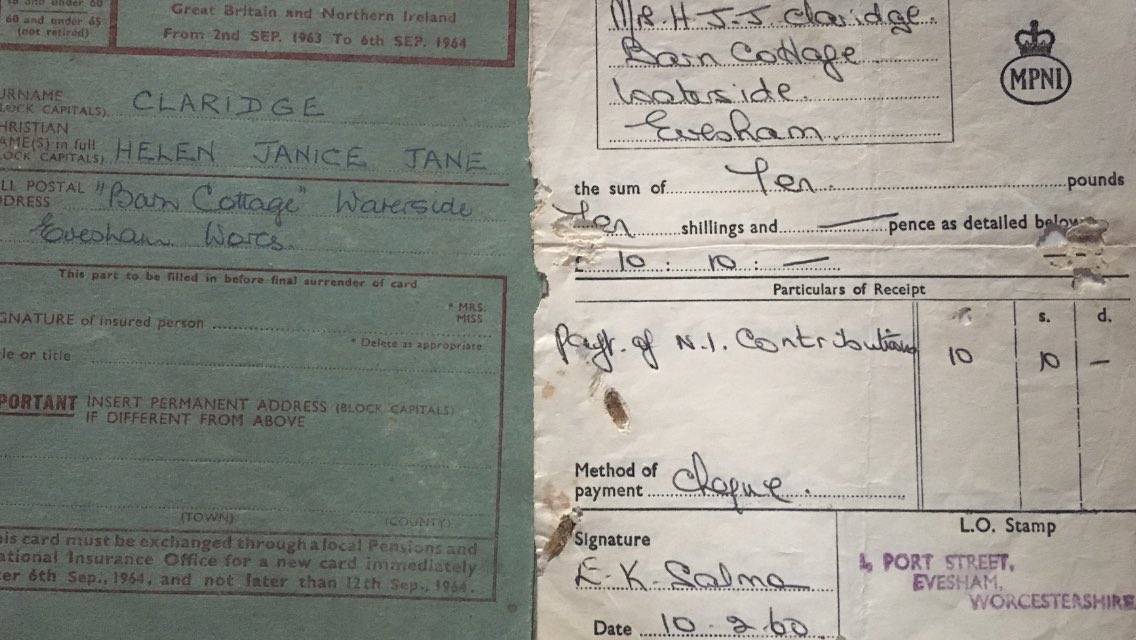 60 and under 65
(not retired)
Great Britain and Northern Ireland
From 2nd SEP. 1963 To 6th SEP. 1964
URNAME
LOCK CAPITALS) CLARIDGE
HRISTIAN
AME(S) in full
LOCK CAPITALS) HELEN JANICE JANE
LL POSTAL "Barn Cottage" Waterside
DDRESS
Evesham Worcs.
This part to be filled in before final surrender of card
* MRS.
MISS
GNATURE of insured person
* Delete as appropriate
le or title
PORTANT INSERT PERMANENT ADDRESS (BLOCK CAPITALS)
IF DIFFERENT FROM ABOVE
(TOWN) (COUNTY)
his card must be exchanged through a local Pensions and
ational Insurance Office for a new card immediately
ter 6th Sep., 1964, and not later than 12th Sep., 1964.
Mrs. H. J. J. Claridge.
Barn Cottage
Waterside.
Evesham.
MPNI
the sum of Ten pounds
Ten shillings and — pence as detailed below
£ 10 : 10 : —
Particulars of Receipt
s. d.
Payt. of N.I. Contributions 10 10 —
Method of
payment Cheque.
Signature
E. K. Salmo
Date 10. 2. 60
L.O. Stamp
PORT STREET,
EVESHAM,
WORCESTERSHIRE